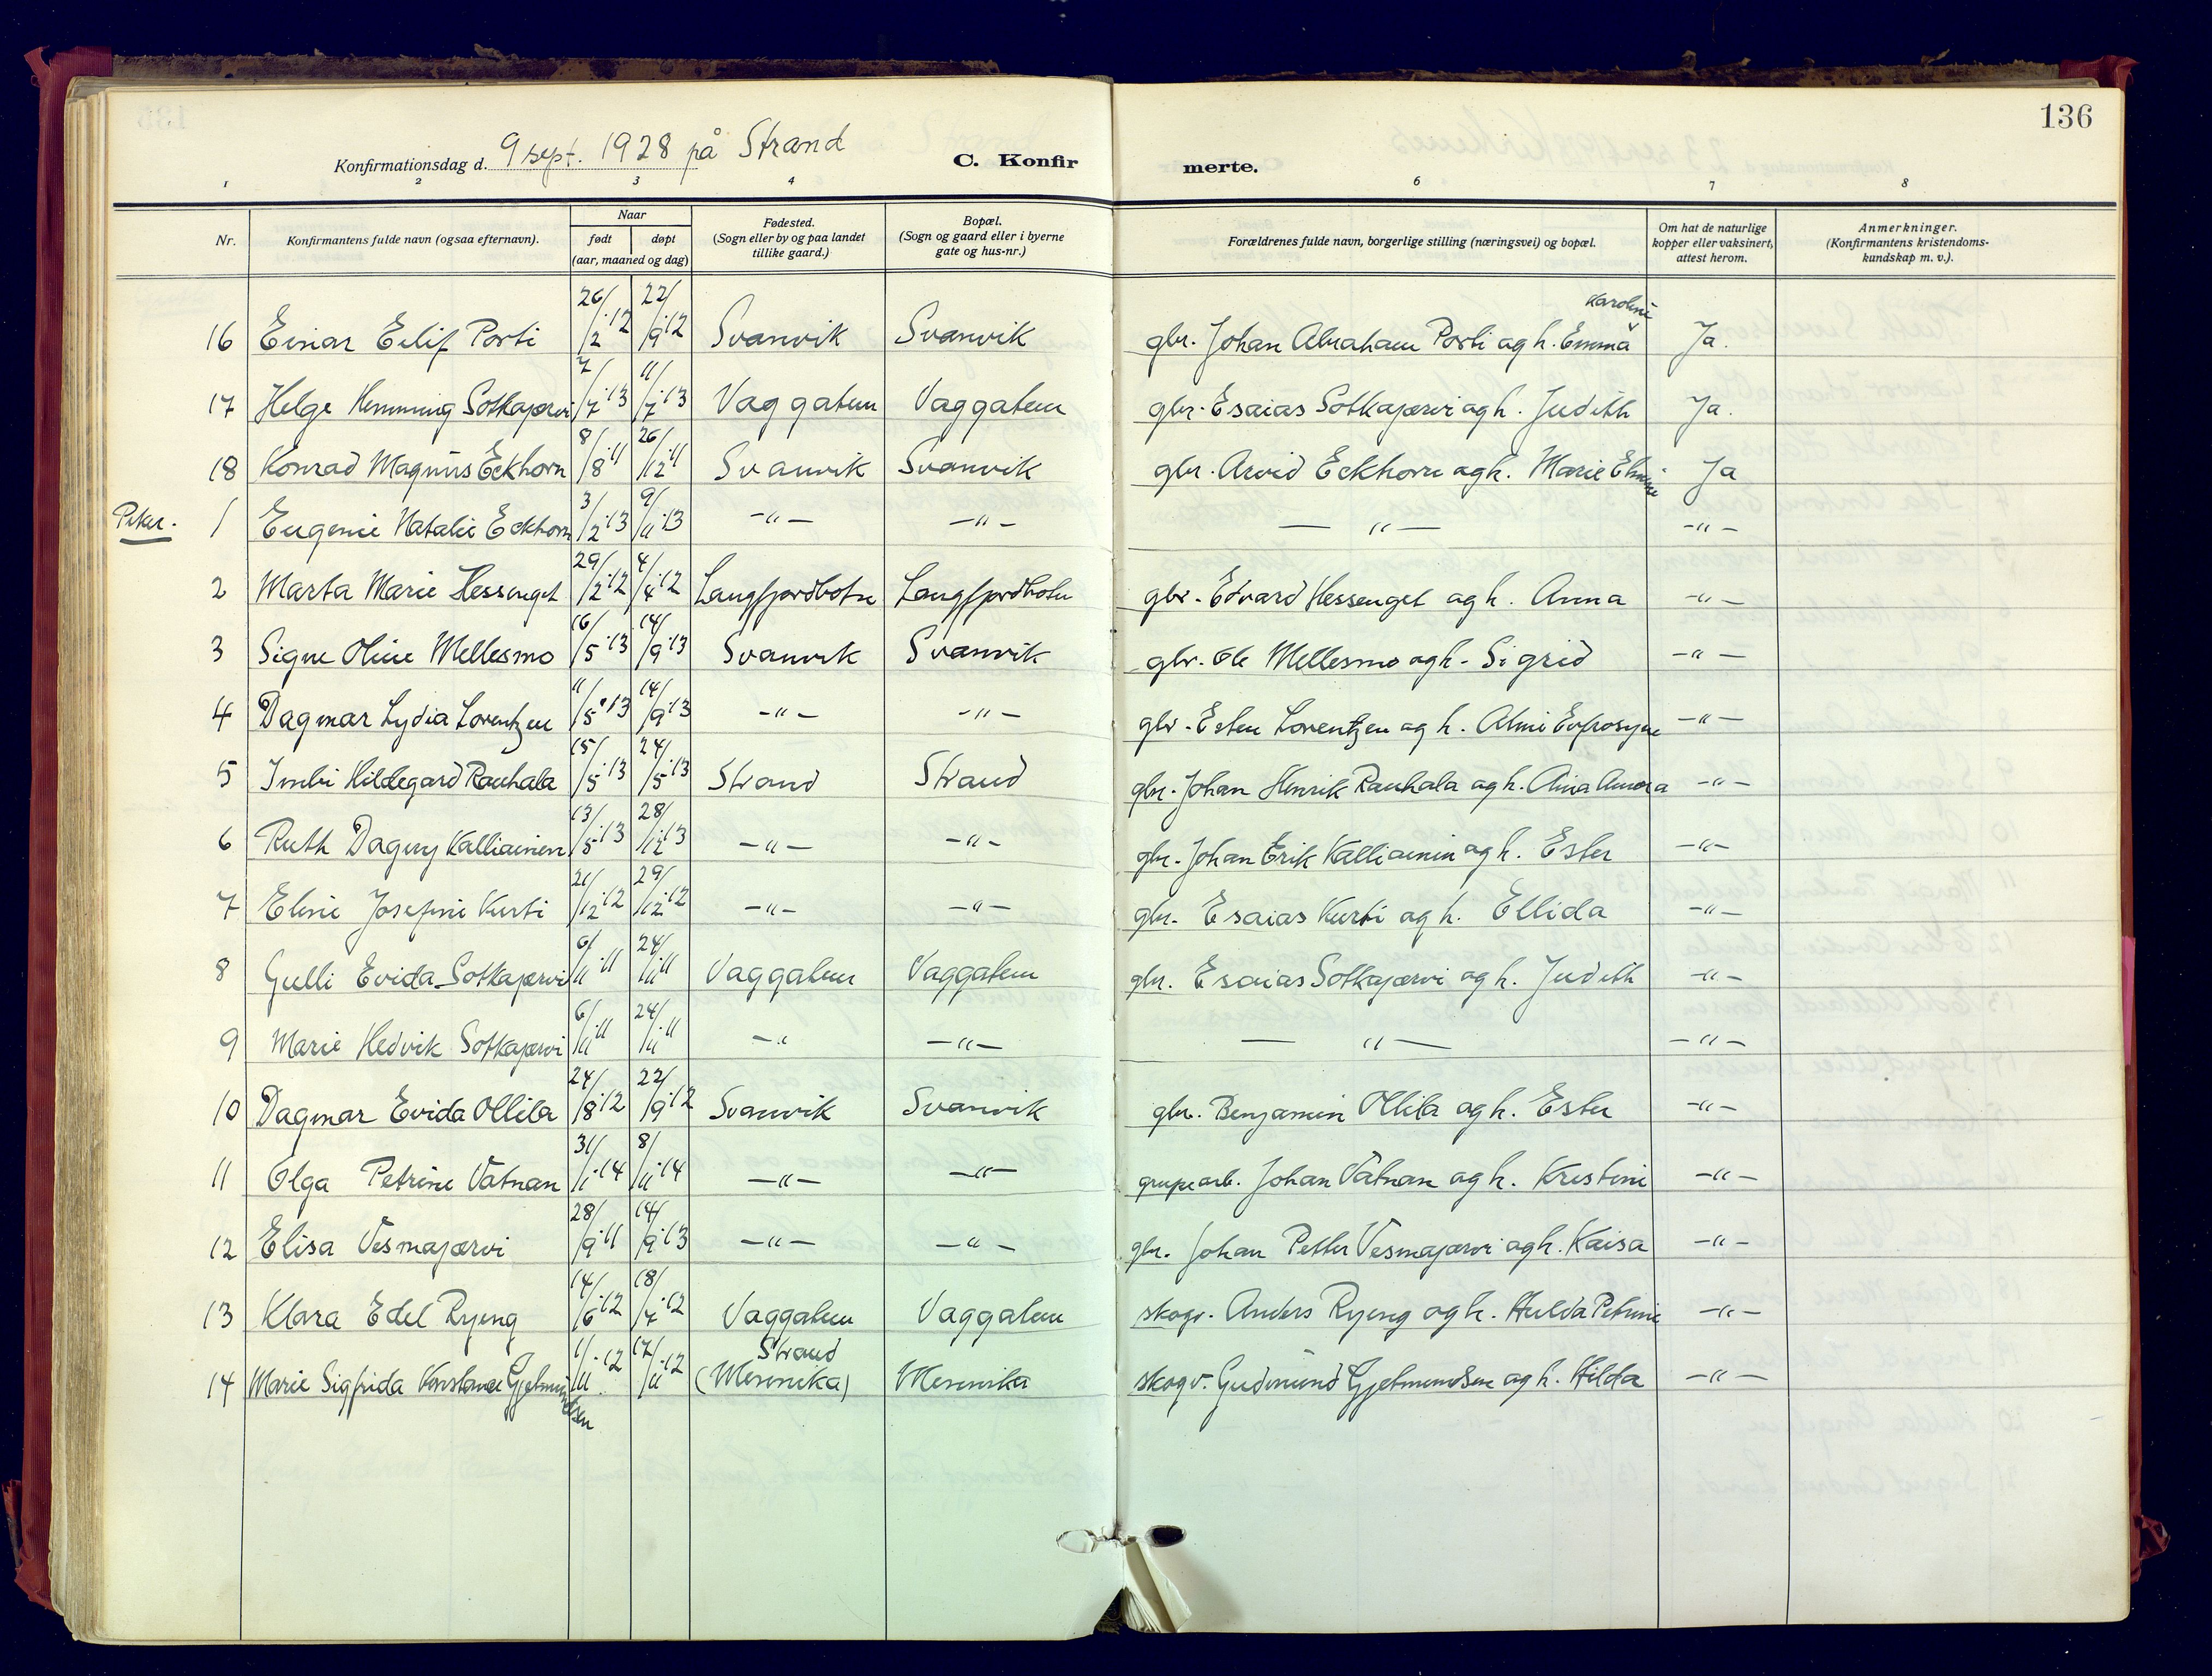 136
Konfirmationsdag d. 9 sept. 1928 på Strand C. Konfir merte.
1 2 3 4 6 7 8
Nr. Konfirmantens fulde navn (ogsaa efternavn). Naar født døpt (aar, maaned og dag) Fødested. (Sogn eller by og paa landet tillike gaard.) Bopæl. (Sogn og gaard eller i byerne gate og hus-nr.) Forældrenes fulde navn, borgerlige stilling (næringsvei) og bopæl. Om hat de naturlige kopper eller vaksinert, attest herom. Anmerkninger. (Konfirmantens kristendoms-kundskap m. v.).
16 Einar Eilif Porti 26/2 '12 22/9 '12 Svanvik Svanvik gbr. Johan Abraham Porti og h. Emma Karoline Ja.
17 Helge Hemming Sotkajærvi 7/7 '13 11/7 '13 Vaggatem Vaggatem gbr. Esaias Sotkajærvi og h. Judith Ja.
18 Konrad Magnus Eckhorn 8/8 '11 26/12 '11 Svanvik Svanvik gbr. Arvid Eckhorn og h. Marie Ja
Piker. 1 Eugenie Natalie Eckhorn 3/2 '13 9/11 '13 -"- -"- -"- -"-
2 Marta Marie Hessenget 29/2 '12 4/4 '12 Langfjordbotn Langfjordbotn gbr. Edvard Hessenget og h. Anna -"-
3 Signe Oline Mellesmo 16/5 '13 14/9 '13 Svanvik Svanvik gbr. Ole Mellesmo og h. Sigrid -"-
4 Dagmar Lydia Lorentzen 11/5 '13 14/9 '13 -"- -"- gbr. Esten Lorentzen og h. Almi Evfrosyne -"-
5 Imbi Hildegard Rauhala 15/5 '13 24/5 '13 Strand Strand gbr. Johan Henrik Rauhala og h. Aina -"-
6 Ruth Dagny Kalliainen 13/5 '13 28/12 '13 -"- -"- gbr. Johan Erik Kalliainen og h. Ester -"-
7 Eline Josefine Kurti 21/12 '12 29/12 '12 -"- -"- gbr. Esaias Kurti og h. Ellida -"-
8 Gulli Evida Sotkajærvi 6/11 '11 24/11 '11 Vaggatem Vaggatem gbr. Esaias Sotkajærvi og h. Judith -"-
9 Marie Hedvik Sotkajærvi 6/11 '11 24/11 '11 -" -"- -"- -"-
10 Dagmar Evida Ollila 24/8 '12 22/9 '12 Svanvik Svanvik gbr. Benjamin Ollila og h. Ester -"-
11 Olga Petrine Vatnan 31/1 '14 8/11 '14 -"- -"- grubearb. Johan Vatnan og h. Kristine -"-
12 Elisa Vesmajærvi 28/9 '11 14/9 '13 -"- -"- gbr. Johan Petter Vesmajærvi og h. Kaisa -"-
13 Klara Edel Ryeng 14/6 '12 18/7 '12 Vaggatem Vaggatem skogv. Anders Ryeng og h. Hulda Petrine -"-
14 Marie Sigfrida Konstanse Gjetmundsen 1/11 '12 17/11 '12 Strand (Mennika) Mennika skogv. Gudmund Gjetmundsen og h. Hilda -"-